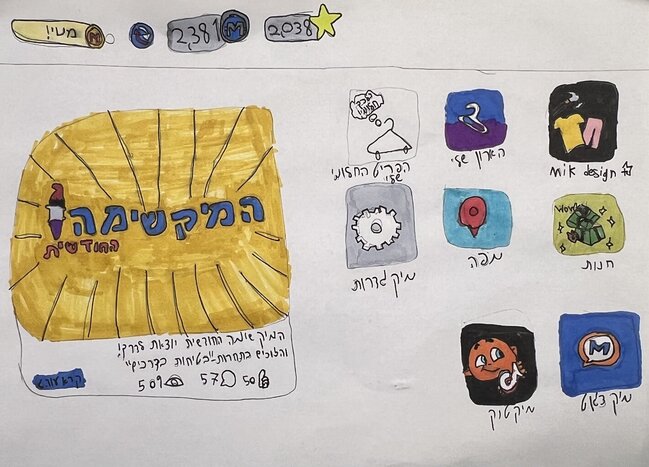 מנוי!
2,381 M
2,038
המיקשימה
החודשית
המיקשימה החודשית יוצאת לדרך!
והזוכים בתחרות-"בטיחות בדרכים"
קרא עוד
509 57 50
הפריט החלומי שלי
הארון שלי
mik design
מיק גדרות
מפה
wow
חנות
מיק טוק
M
מיק צ'אט